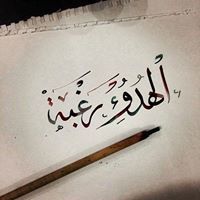 الهُدُوُء رَغْبَةْ